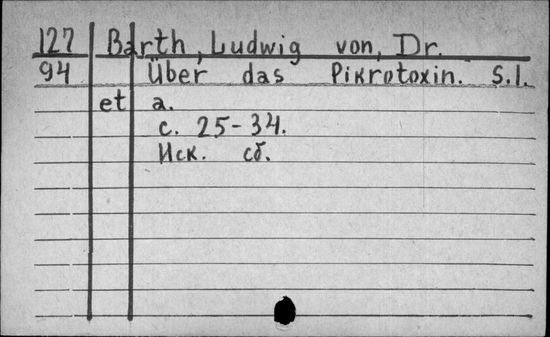 127 Barth, Ludwig von, Dr.
94 Über das Pikrotoxin. S.l.
et a.
с. 25-34.
Иск. сб.